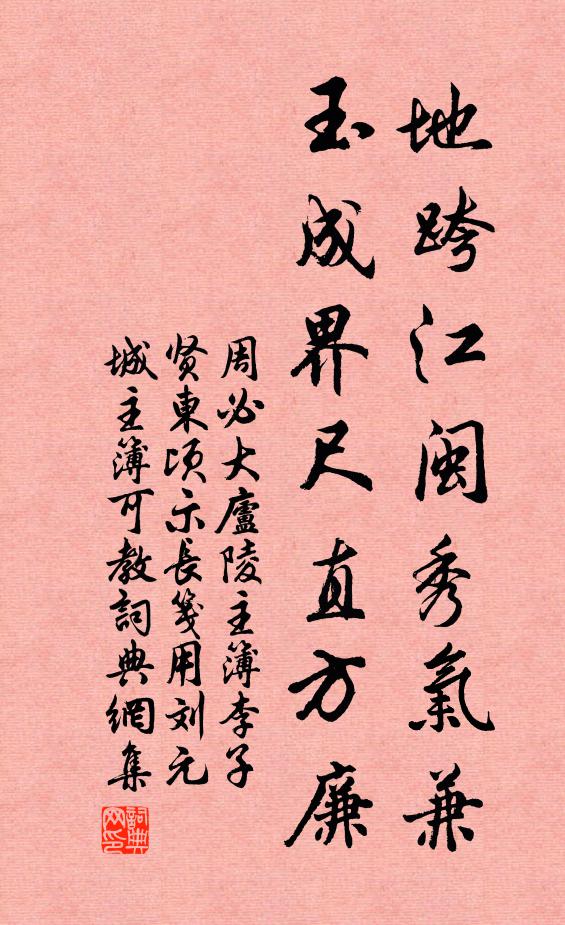 地跨江闽秀氣兼
玉成界尺直方廉
周必大廬陵主簿李子
贤東頃示長箋用刘元
城主簿可教詞典網集
詞典网印